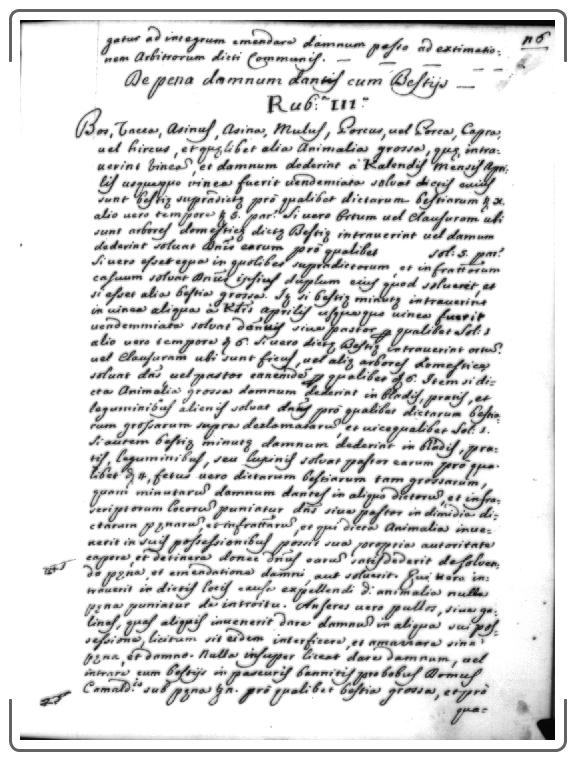 n6
gatur ad integrum emendare damnum passo ad extimatio-
nem Arbitrorum dicti Communis.
De pena damnum dantis cum Bestijs
Rub: III:
Bos, Vacca, Asinus, Asina, Mulus, Porcus, vel Porca, Capra,
vel hircus, et quęlibet alia Animalia grossa, quę intra-
uerint vineā, et damnum dederint à Kalendis Mensis Apri-
lis usquequo vinea fuerit vendemiata soluat
sunt bestię supradictę prō qualibet dictarum bestiarum
alio vero tempore 5. par: Si vero Ortum vel Clausuram ubi
sunt arbores domesticę dictę Bestię intrauerint vel damum
dederint soluat Dn̄us earum prō qualibet sol: 5. par:
Si vero esset equa in quolibet supradictorum, et infrattorum
casuum soluat Dn̄us ipsius duplum eius quod solueret et
si esset alia bestia grossa. Itę si bestię minutę intrauerint
in vinea aliqua à Kłis Aprilis usquequo vinea fuerit
vendemmiata soluat siue pastor qualibet sol: 1
alio vero tempore 6. Si vero dictę Bestię intrauerint ortū
vel Clausuram ubi sunt ficus, vel alię arbores domesticę
soluat dn̄s vel pastor qualibet 6. Item si di-
cta Animalia grossa damnum dederint in bladis, pratis, et
leguminibus alienis soluat dn̄us prō qualibet dictarum bestia-
rum grossarum supra declamatarū et uicequalibet Sol: 1.
Si autem bestię minutę damnum dederint in bladis, pra-
tis, leguminibus, seu lupinis soluat pastor earum prō qua-
libet 4, fetus vero dictarum bestiarum tam grossarum,
quam minutarū damnum dantes in aliquo dictorū, et infra-
scriptorum locorū puniatur dn̄s siue pastor in dimidia di-
ctarum pęnarū, et infrattarū, et qui dicta Animalia inue-
nerit in suis possessionibus possit sua propria autoritate
capere, et detinere donec dn̄us earū satisdederit de soluen-
do pęna, et emendatione damni, aut soluerit. Qui vero in-
trauerit in dictis locis causa expellendi dī animalia nulla
pęna puniatur de introitu. Anseres uero pullos, siue ga-
linas, quas aliquis inuenerit dare damnū in aliqua sui pos-
sessione, licitum sit eidem interficere, et amazzare sine
pęna, et damno. Nulla insuper liceat dare damnum, vel
intrare cum bestijs in pascuis bannitis probobus Domus
Camald: sub pęna prō qualibet bestia grossa, et prō
qua-